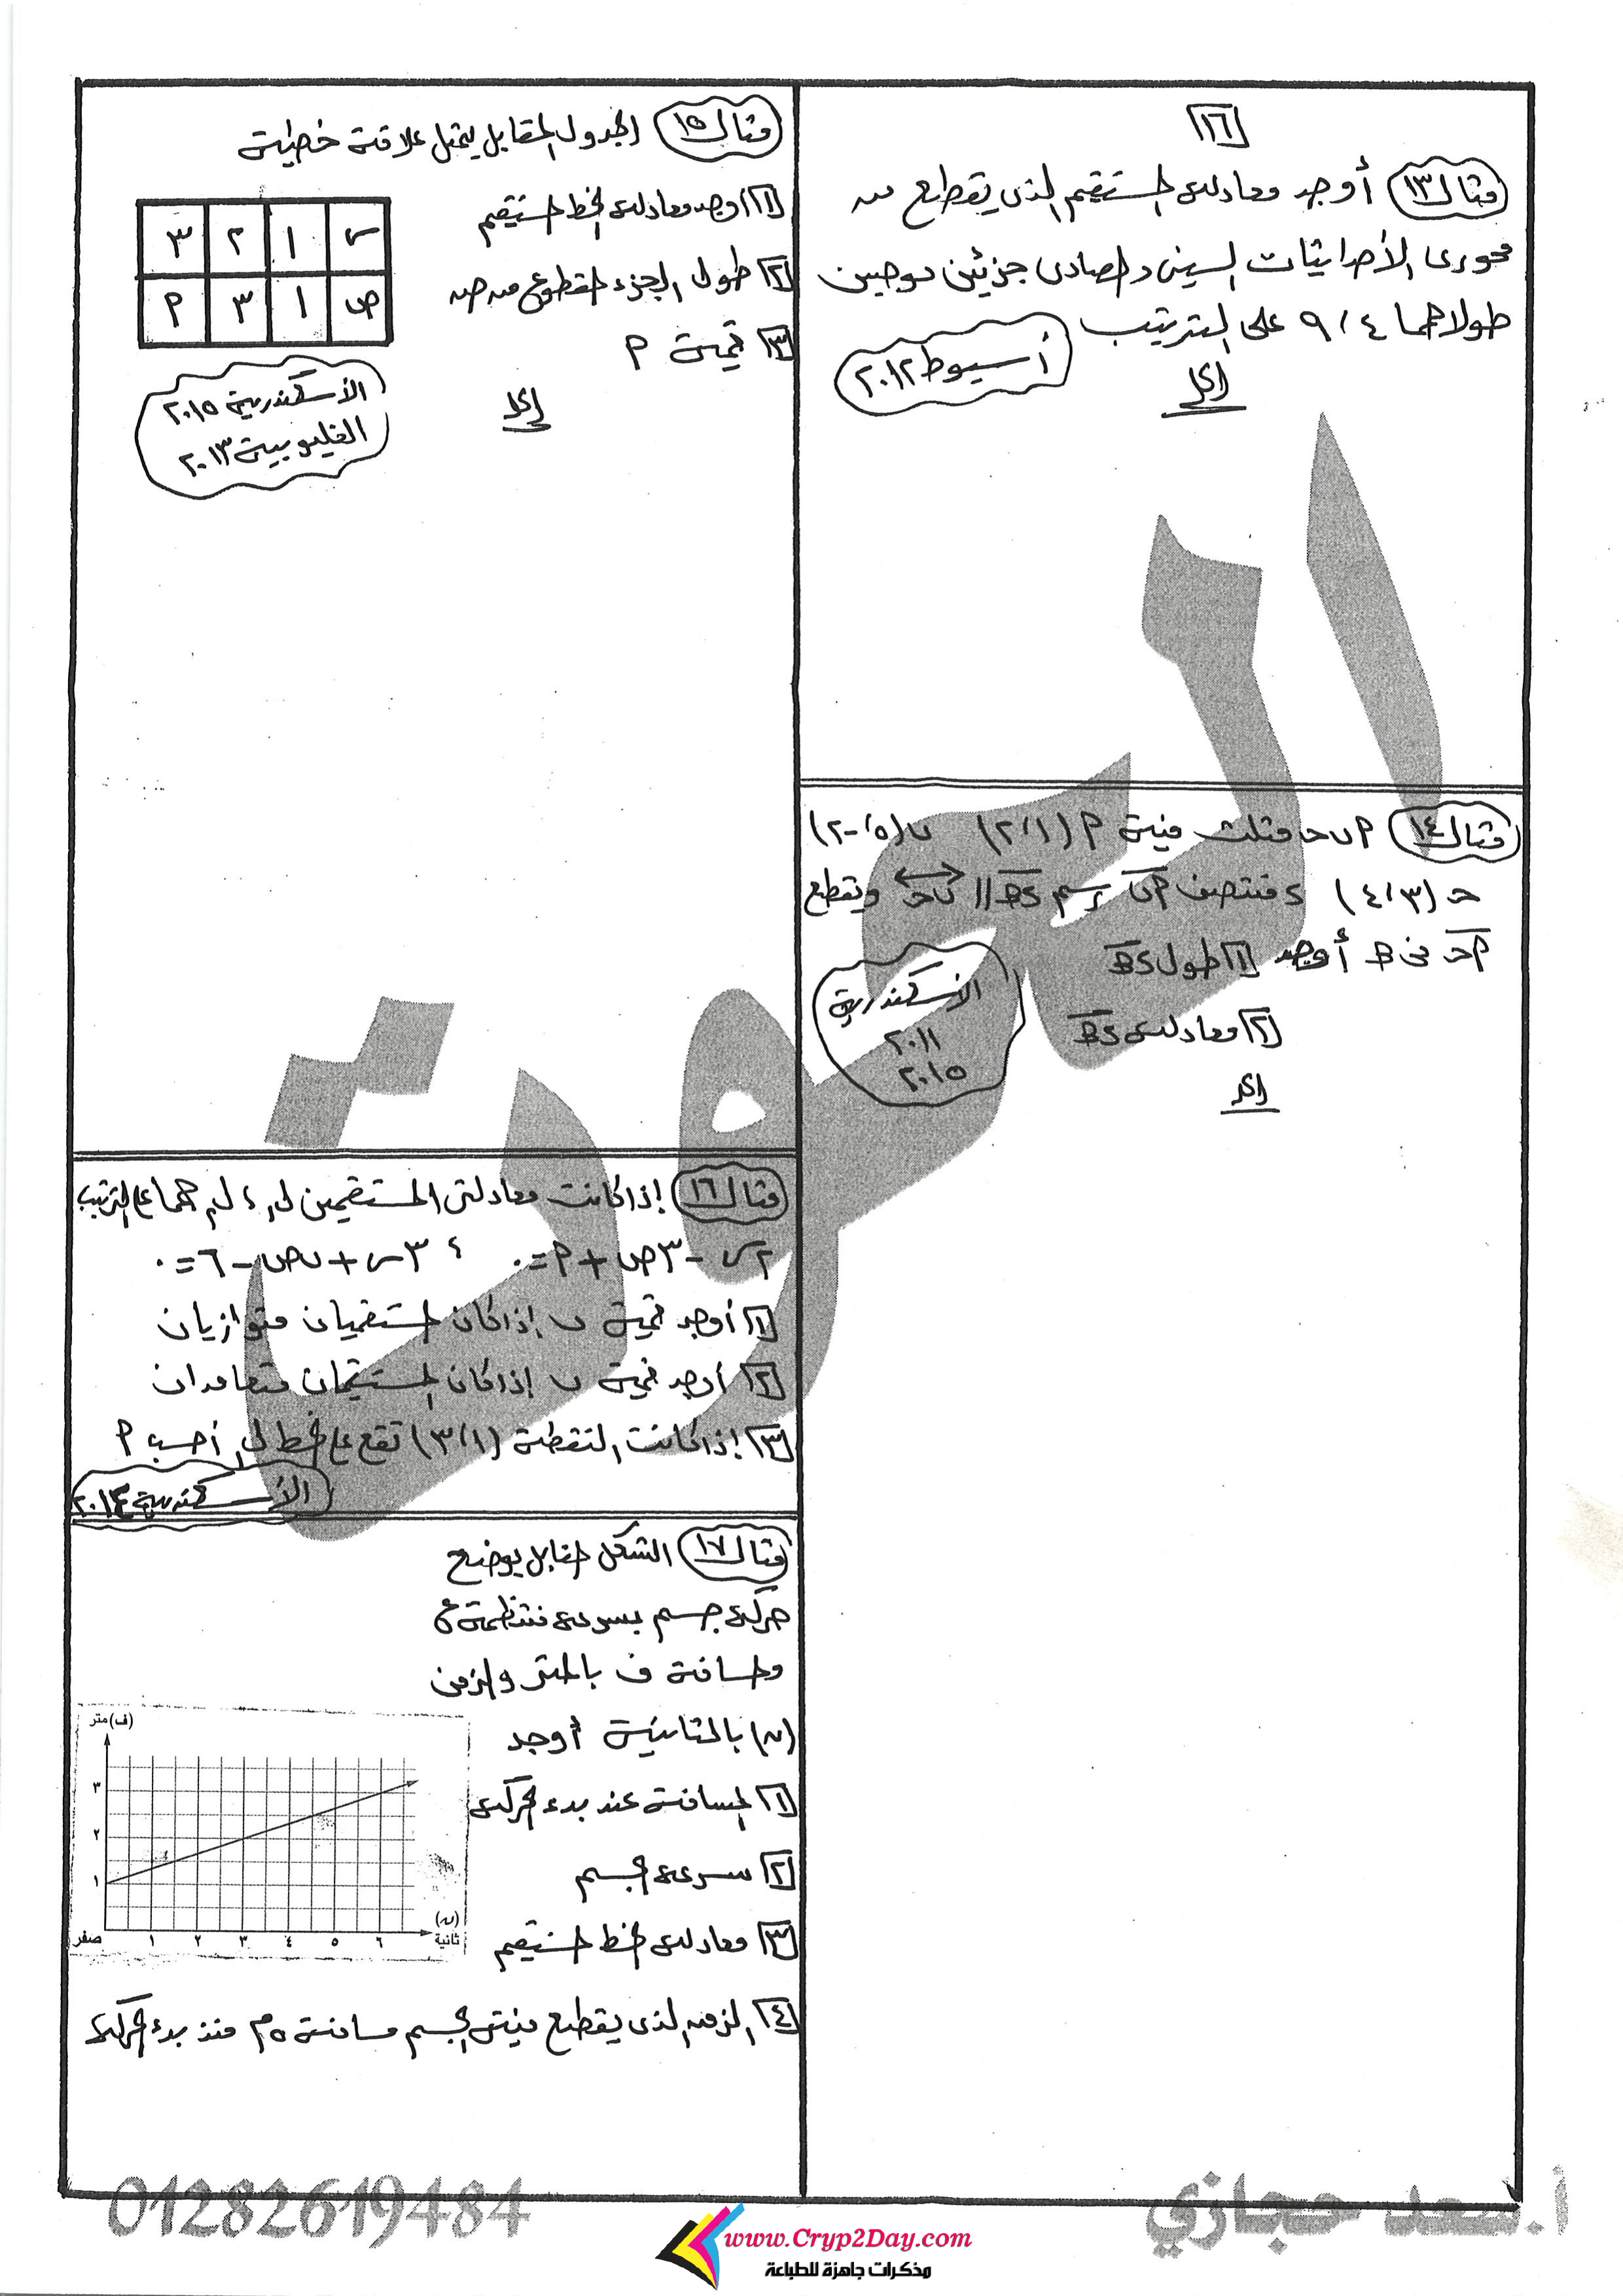 ١٦
مثال ١٣ أوجد معادلة المستقيم الذى يقطع من
محورى الأحداثيات السينى والصادى جزئين موجبين
طولاهما ٤ ، ٩ على الترتيب
أسيوط ٢٠١٢
الحل
مثال ١٤ ٩ ب ح مثلث فيه ٩ (١ ، ٢) ب (٥ ، -٢)
ح (٣ ، ٤) ء منتصف ٩ب رسم ءھ // ب ح ويقطع
٩ح فى ھ أوجد ١ طول ءھ
٢ معادلة ءھ
الأسكندرية
٢٠١١
٢٠١٥
الحل
مثال ١٥ الجدول المقابل يمثل علاقة خطية
١ اوجد معادلة الخط المستقيم
٢ طول الجزء المقطوع من ص
٣ قيمة ٩
س ١ ٢ ٣
ص ١ ٣ ٩
الأسكندرية ٢٠١٥
القليوبية ٢٠١٣
الحل
مثال ١٦ إذا كانت معادلتى المستقيمين ل١ ، ل٢ هما على الترتيب
٢س - ٣ص + ٩ = ٠ ، ٣س + ب ص - ٦ = ٠
١ أوجد قيمة ب إذا كان المستقيمان متوازيان
٢ أوجد قيمة ب إذا كان المستقيمان متعامدان
٣ إذا كانت النقطة (١ ، ٣) تقع على الخط ل١ أحسب ٩
الأسكندرية ٢٠١٤
مثال ١٧ الشكل المقابل يوضح
حركة جسم بسرعة منتظمة ع
والمسافة ف بالمتر والزمن
(ن) بالثانية أوجد
١ المسافة عند بدء الحركة
٢ سرعة الجسم
٣ معادلة الخط المستقيم
٤ الزمن الذى يقطع فيه الجسم مسافة ٥م منذ بدء الحركة
(ف) متر
٣
٢
١
صفر ١ ٢ ٣ ٤ ٥ ٦
(ن)
ثانية
01282619484
أ.سعد حجازي
www.Cryp2Day.com
مذكرات جاهزة للطباعة